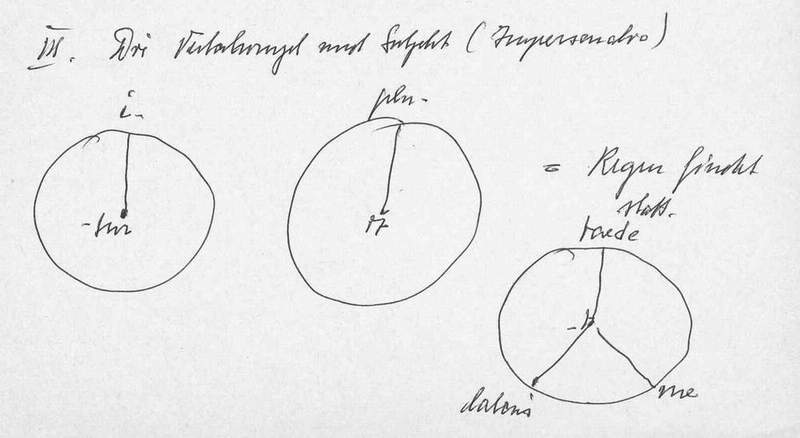 III. Die Verbalwurzel und Subjekt (Impersonalia)
i-
-tur
plu-
it
= Regen findet
statt.
taede
-t
laboris
me